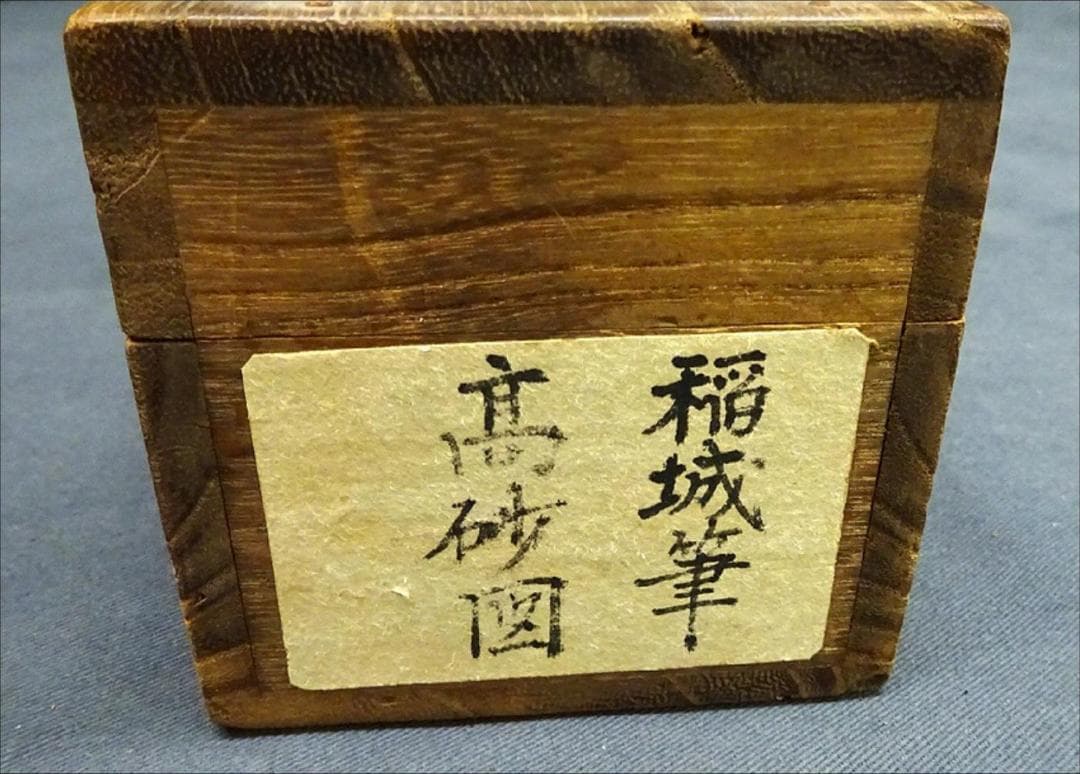 稲城筆
髙砂図